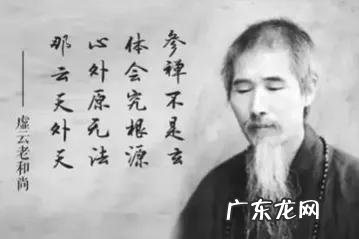 参禅不是玄
体会究根源
心外原无法
那云天外天
——虚云老和尚
广东龙网